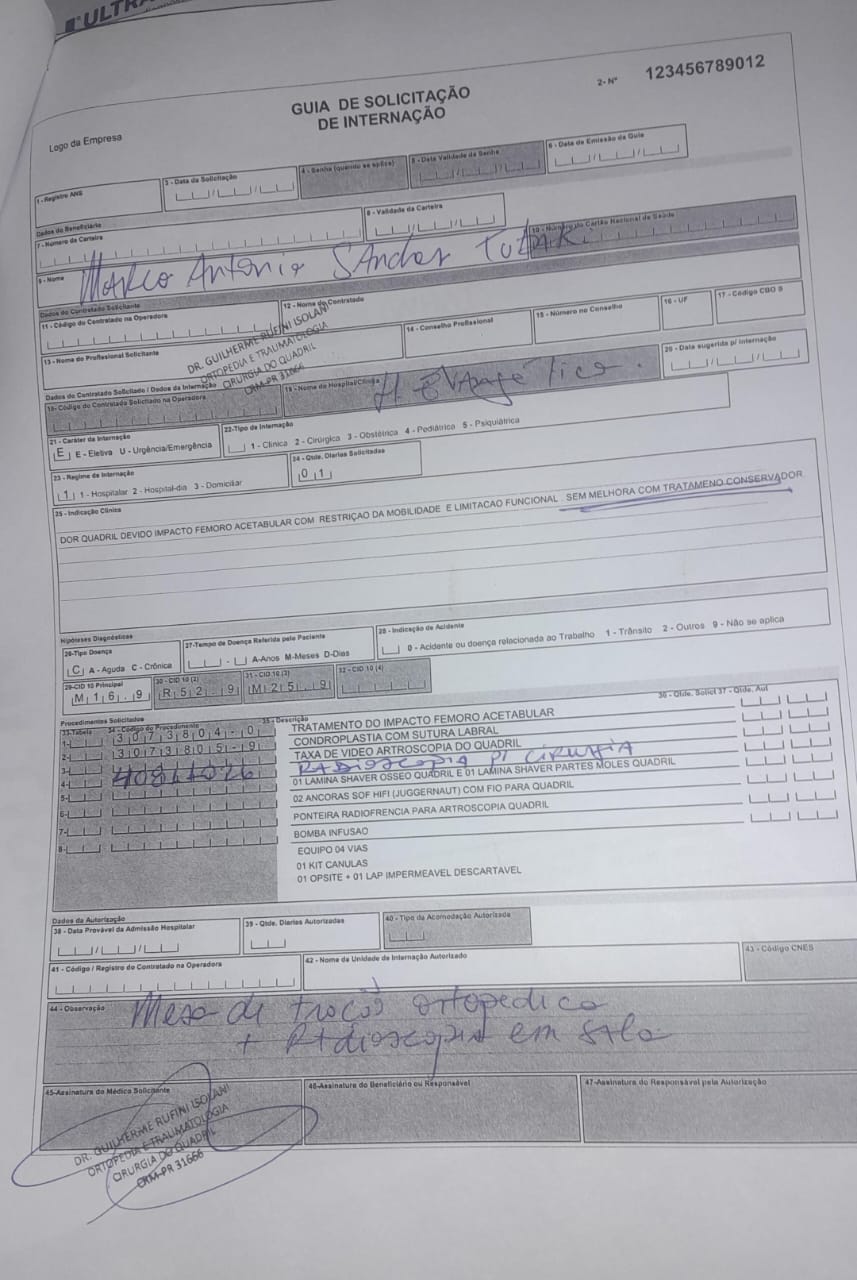 ULTRA
Logo da Empresa
GUIA DE SOLICITAÇÃO
DE INTERNAÇÃO
2- Nº 123456789012
1 - Registro ANS
3 - Data da Solicitação
4 - Senha (quando se aplica)
5 - Data Validade da Senha
6 - Data de Emissão da Guia
Dados do Beneficiário
7 - Número da Carteira
8 - Validade da Carteira
9 - Nome
Marco Antonio Sanches
10 - Número do Cartão Nacional de Saúde
Dados do Contratado Solicitante
11 - Código do Contratado na Operadora
12 - Nome do Contratado
13 - Nome do Profissional Solicitante
DR. GUILHERME RUFINI ISOLANI
ORTOPEDIA E TRAUMATOLOGIA
CIRURGIA DO QUADRIL
CRM-PR 31666
14 - Conselho Profissional
15 - Número no Conselho
16 - UF
17 - Código CBO S
Dados do Contratado Solicitado / Dados da Internação
18 - Código do Contratado Solicitado na Operadora
19 - Nome do Hospital/Clínica
H Evangélico.
20 - Data sugerida p/ internação
21 - Caráter da Internação
E E - Eletiva U - Urgência/Emergência
22-Tipo de Internação
1 - Clínica 2 - Cirúrgica 3 - Obstétrica 4 - Pediátrica 5 - Psiquiátrica
23 - Regime de Internação
1 1 - Hospitalar 2 - Hospital-dia 3 - Domiciliar
24 - Qtde. Diárias Solicitadas
0 1
25 - Indicação Clínica
DOR QUADRIL DEVIDO IMPACTO FEMORO ACETABULAR COM RESTRIÇAO DA MOBILIDADE E LIMITACAO FUNCIONAL . SEM MELHORA COM TRATAMENO CONSERVADOR
Hipóteses Diagnósticas
26-Tipo Doença
C A - Aguda C - Crônica
27-Tempo de Doença Referida pelo Paciente
A-Anos M-Meses D-Dias
28 - Indicação de Acidente
0 - Acidente ou doença relacionada ao Trabalho 1 - Trânsito 2 - Outros 9 - Não se aplica
29-CID 10 Principal
M 1 6 . 9
30 - CID 10 (2)
R 5 2 . 9
31 - CID 10 (3)
M 2 5 . 9
32 - CID 10 (4)
Procedimentos Solicitados
33-Tabela 34 - Código do Procedimento 35 - Descrição 36 - Qtde. Solict 37 - Qtde. Aut
1- 3 0 7 3 8 0 4 - 0 TRATAMENTO DO IMPACTO FEMORO ACETABULAR
2- 3 0 7 3 8 0 5 - 9 CONDROPLASTIA COM SUTURA LABRAL
3- TAXA DE VIDEO ARTROSCOPIA DO QUADRIL
4- 40811026 RADIOSCOPIA P/ CIRURGIA
5- 01 LAMINA SHAVER OSSEO QUADRIL E 01 LAMINA SHAVER PARTES MOLES QUADRIL
6- 02 ANCORAS SOF HIFI (JUGGERNAUT) COM FIO PARA QUADRIL
7- PONTEIRA RADIOFRENCIA PARA ARTROSCOPIA QUADRIL
8- BOMBA INFUSAO
EQUIPO 04 VIAS
01 KIT CANULAS
01 OPSITE + 01 LAP IMPERMEAVEL DESCARTAVEL
Dados da Autorização
38 - Data Provável da Admissão Hospitalar
39 - Qtde. Diarias Autorizadas
40 - Tipo da Acomodação Autorizada
41 - Código / Registro do Contratado na Operadora
42 - Nome da Unidade de Internação Autorizado
43 - Código CNES
44 - Observação
Mesa de tração ortopedica
+ Radioscopia em sala
45-Assinatura do Médico Solicitante
46-Assinatura do Beneficiário ou Responsável
47-Assinatura do Responsável pela Autorização
DR. GUILHERME RUFINI ISOLANI
ORTOPEDIA E TRAUMATOLOGIA
CIRURGIA DO QUADRIL
CRM-PR 31666